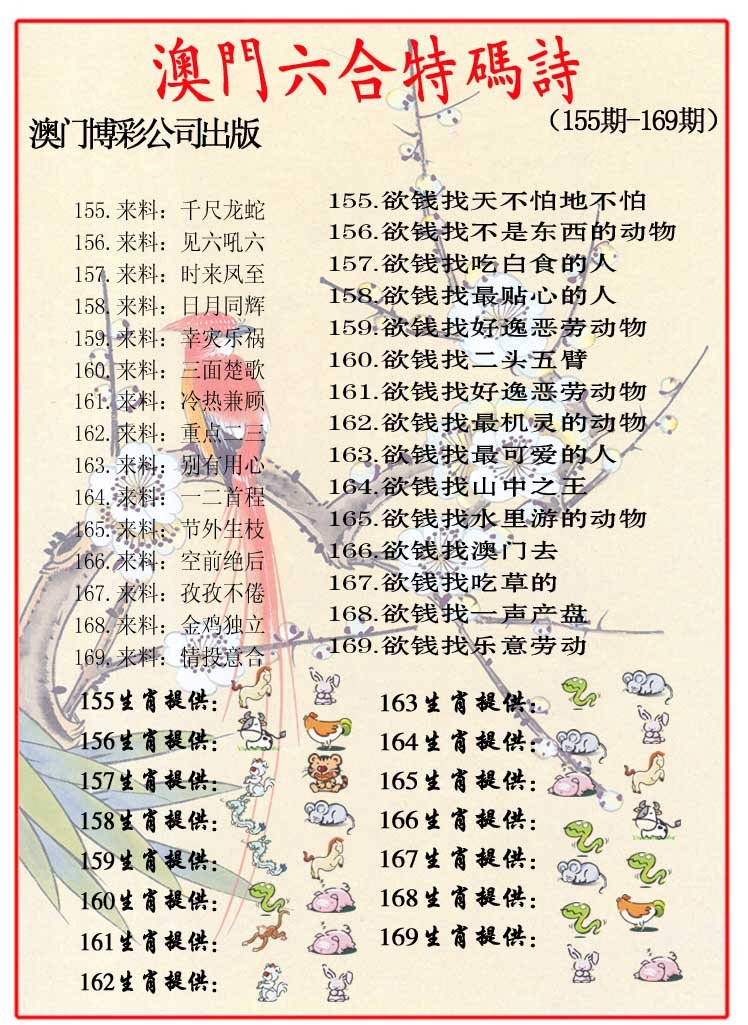 澳門六合特碼詩
澳门博彩公司出版
（155期-169期）
155.来料：千尺龙蛇
156.来料：见六吼六
157.来料：时来凤至
158.来料：日月同辉
159.来料：幸灾乐祸
160.来料：三面楚歌
161.来料：冷热兼顾
162.来料：重点二三
163.来料：别有用心
164.来料：一二首程
165.来料：节外生枝
166.来料：空前绝后
167.来料：孜孜不倦
168.来料：金鸡独立
169.来料：情投意合
155.欲钱找天不怕地不怕
156.欲钱找不是东西的动物
157.欲钱找吃白食的人
158.欲钱找最贴心的人
159.欲钱找好逸恶劳动物
160.欲钱找二头五臂
161.欲钱找好逸恶劳动物
162.欲钱找最机灵的动物
163.欲钱找最可爱的人
164.欲钱找山中之王
165.欲钱找水里游的动物
166.欲钱找澳门去
167.欲钱找吃草的
168.欲钱找一声产盘
169.欲钱找乐意劳动
155生肖提供：
156生肖提供：
157生肖提供：
158生肖提供：
159生肖提供：
160生肖提供：
161生肖提供：
162生肖提供：
163生肖提供：
164生肖提供：
165生肖提供：
166生肖提供：
167生肖提供：
168生肖提供：
169生肖提供：